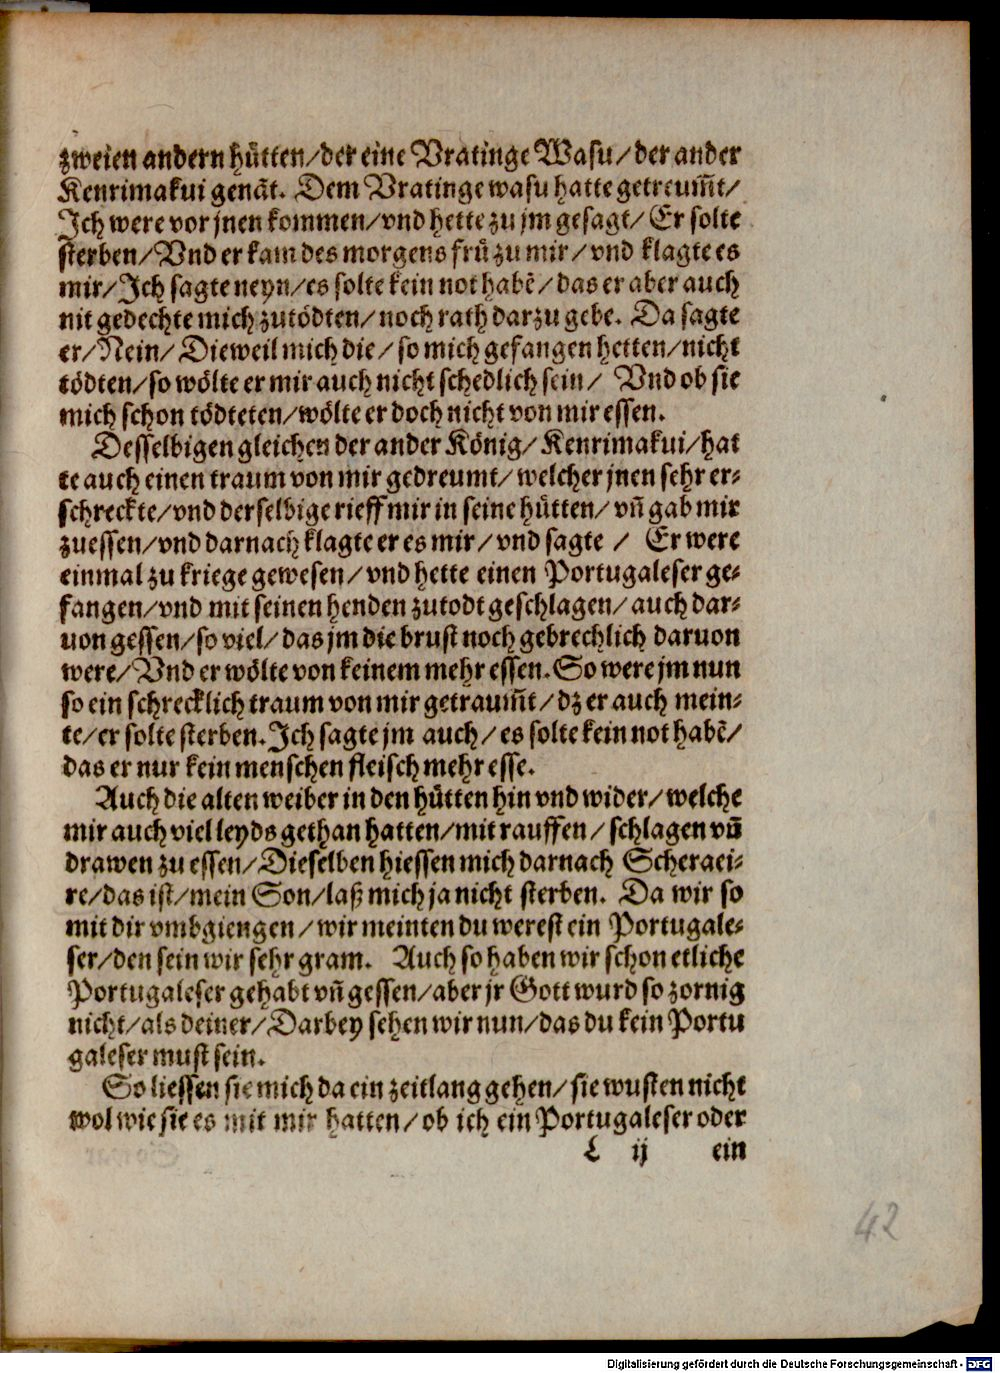 zweien andern hütten/der eine Vratinge Wasu/der ander
Kenrimakui genāt. Dem Vratinge wasu hatte getreum̄t/
Ich were vor jnen kommen/vnd hette zu jm gesagt/ Er solte
sterben/Vnd er kam des morgens frü zu mir/vnd klagte es
mir/Ich sagte neyn/es solte kein not habē/das er aber auch
nit gedechte mich zutödten/noch rath darzu gebe. Da sagte
er/Nein/ Dieweil mich die/so mich gefangen hetten/nicht
tödten/so wölte er mir auch nicht schedlich sein/ Vnd ob sie
mich schon tödteten/wölte er doch nicht von mir essen.
Desselbigen gleichen der ander König/Kenrimakui/hat
te auch einen traum von mir gedreumt/welcher jnen sehr er-
schreckte/vnd derselbige rieff mir in seine hütten/vn̄ gab mir
zuessen/vnd darnach klagte er es mir/vnd sagte / Er were
einmal zu kriege gewesen/vnd hette einen Portugaleser ge-
fangen/vnd mit seinen henden zutodt geschlagen/auch dar-
uon gessen/so viel/das jm die brust noch gebrechlich daruon
were/Vnd er wölte von keinem mehr essen. So were jm nun
so ein schrecklich traum von mir getraum̄t/dz er auch mein-
te/er solte sterben. Ich sagte jm auch/es solte kein not habē/
das er nur kein menschen fleisch mehr esse.
Auch die alten weiber in den hütten hin vnd wider/welche
mir auch viel leyds gethan hatten/mit rauffen/schlagen vn̄
drawen zu essen/Dieselben hiessen mich darnach Scheraei-
re/das ist/mein Son/laß mich ja nicht sterben. Da wir so
mit dir vmbgiengen/wir meinten du werest ein Portugale-
ser/den sein wir sehr gram. Auch so haben wir schon etliche
Portugaleser gehabt vn̄ gessen/aber jr Gott wurd so zornig
nicht/als deiner/Darbey sehen wir nun/das du kein Portu
galeser must sein.
So liessen sie mich da ein zeitlang gehen/sie wusten nicht
wol wie sie es mit mir hatten/ob ich ein Portugaleser oder
L ij ein
42
Digitalisierung gefördert durch die Deutsche Forschungsgemeinschaft - DFG